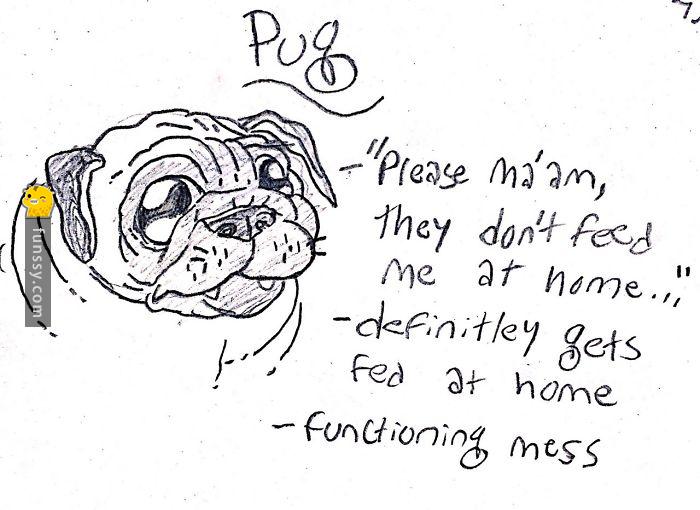 Pug
-"Please ma'am,
they don't feed
me at home..."
-definitley gets
fed at home
-functioning mess
funssy.com